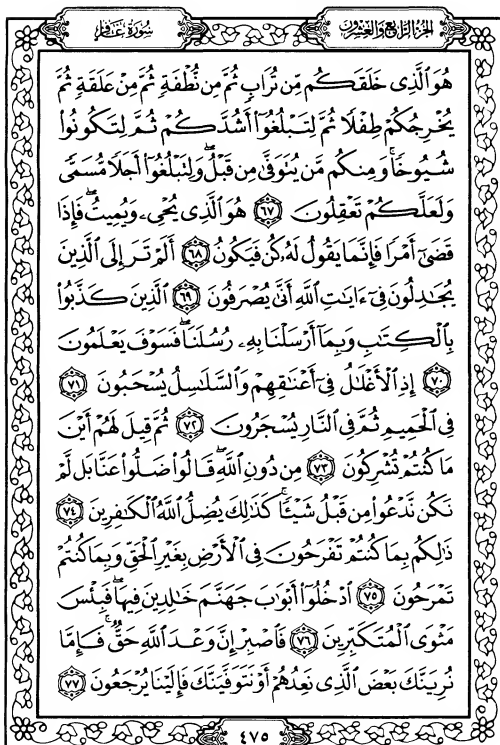 سُورَةُ غَافِرٍ
الجُزْءُ الرَّابِعُ وَالعِشْرُونَ
هُوَ ٱلَّذِى خَلَقَكُم مِّن تُرَابٍ ثُمَّ مِن نُّطْفَةٍ ثُمَّ مِنْ عَلَقَةٍ ثُمَّ
يُخْرِجُكُمْ طِفْلًا ثُمَّ لِتَبْلُغُوٓا۟ أَشُدَّكُمْ ثُمَّ لِتَكُونُوا۟
شُيُوخًا ۚ وَمِنكُم مَّن يُتَوَفَّىٰ مِن قَبْلُ ۖ وَلِتَبْلُغُوٓا۟ أَجَلًا مُّسَمًّى
وَلَعَلَّكُمْ تَعْقِلُونَ ٦٧ هُوَ ٱلَّذِى يُحْىِۦ وَيُمِيتُ ۖ فَإِذَا
قَضَىٰٓ أَمْرًا فَإِنَّمَا يَقُولُ لَهُۥ كُن فَيَكُونُ ٦٨ أَلَمْ تَرَ إِلَى ٱلَّذِينَ
يُجَٰدِلُونَ فِىٓ ءَايَٰتِ ٱللَّهِ أَنَّىٰ يُصْرَفُونَ ٦٩ ٱلَّذِينَ كَذَّبُوا۟
بِٱلْكِتَٰبِ وَبِمَآ أَرْسَلْنَا بِهِۦ رُسُلَنَا ۖ فَسَوْفَ يَعْلَمُونَ
٧٠ إِذِ ٱلْأَغْلَٰلُ فِىٓ أَعْنَٰقِهِمْ وَٱلسَّلَٰسِلُ يُسْحَبُونَ ٧١
فِى ٱلْحَمِيمِ ثُمَّ فِى ٱلنَّارِ يُسْجَرُونَ ٧٢ ثُمَّ قِيلَ لَهُمْ أَيْنَ
مَا كُنتُمْ تُشْرِكُونَ ٧٣ مِن دُونِ ٱللَّهِ ۖ قَالُوا۟ ضَلُّوا۟ عَنَّا بَل لَّمْ
نَكُن نَّدْعُوا۟ مِن قَبْلُ شَيْـًٔا ۚ كَذَٰلِكَ يُضِلُّ ٱللَّهُ ٱلْكَٰفِرِينَ ٧٤
ذَٰلِكُم بِمَا كُنتُمْ تَفْرَحُونَ فِى ٱلْأَرْضِ بِغَيْرِ ٱلْحَقِّ وَبِمَا كُنتُمْ
تَمْرَحُونَ ٧٥ ٱدْخُلُوٓا۟ أَبْوَٰبَ جَهَنَّمَ خَٰلِدِينَ فِيهَا ۖ فَبِئْسَ
مَثْوَى ٱلْمُتَكَبِّرِينَ ٧٦ فَٱصْبِرْ إِنَّ وَعْدَ ٱللَّهِ حَقٌّ ۚ فَإِمَّا
نُرِيَنَّكَ بَعْضَ ٱلَّذِى نَعِدُهُمْ أَوْ نَتَوَفَّيَنَّكَ فَإِلَيْنَا يُرْجَعُونَ ٧٧
٤٧٥